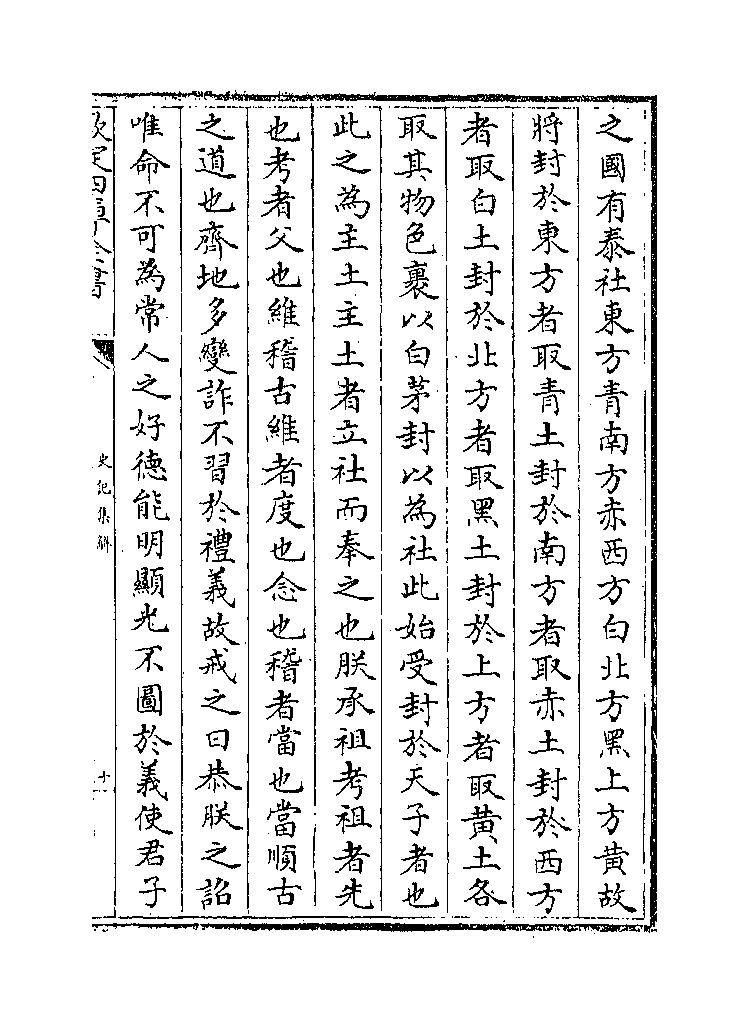 之國有泰社東方青南方赤西方白北方黑上方黄故
將封於東方者取青土封於南方者取赤土封於西方
者取白土封於北方者取黑土封於上方者取黄土各
取其物色裹以白茅封以為社此始受封於天子者也
此之為主土主土者立社而奉之也朕承祖考祖者先
也考者父也維稽古維者度也念也稽者當也當順古
之道也齊地多變詐不習於禮義故戒之曰恭朕之詔
唯命不可為常人之好德能明顯光不圖於義使君子
欽定四庫全書
史記集解
十一